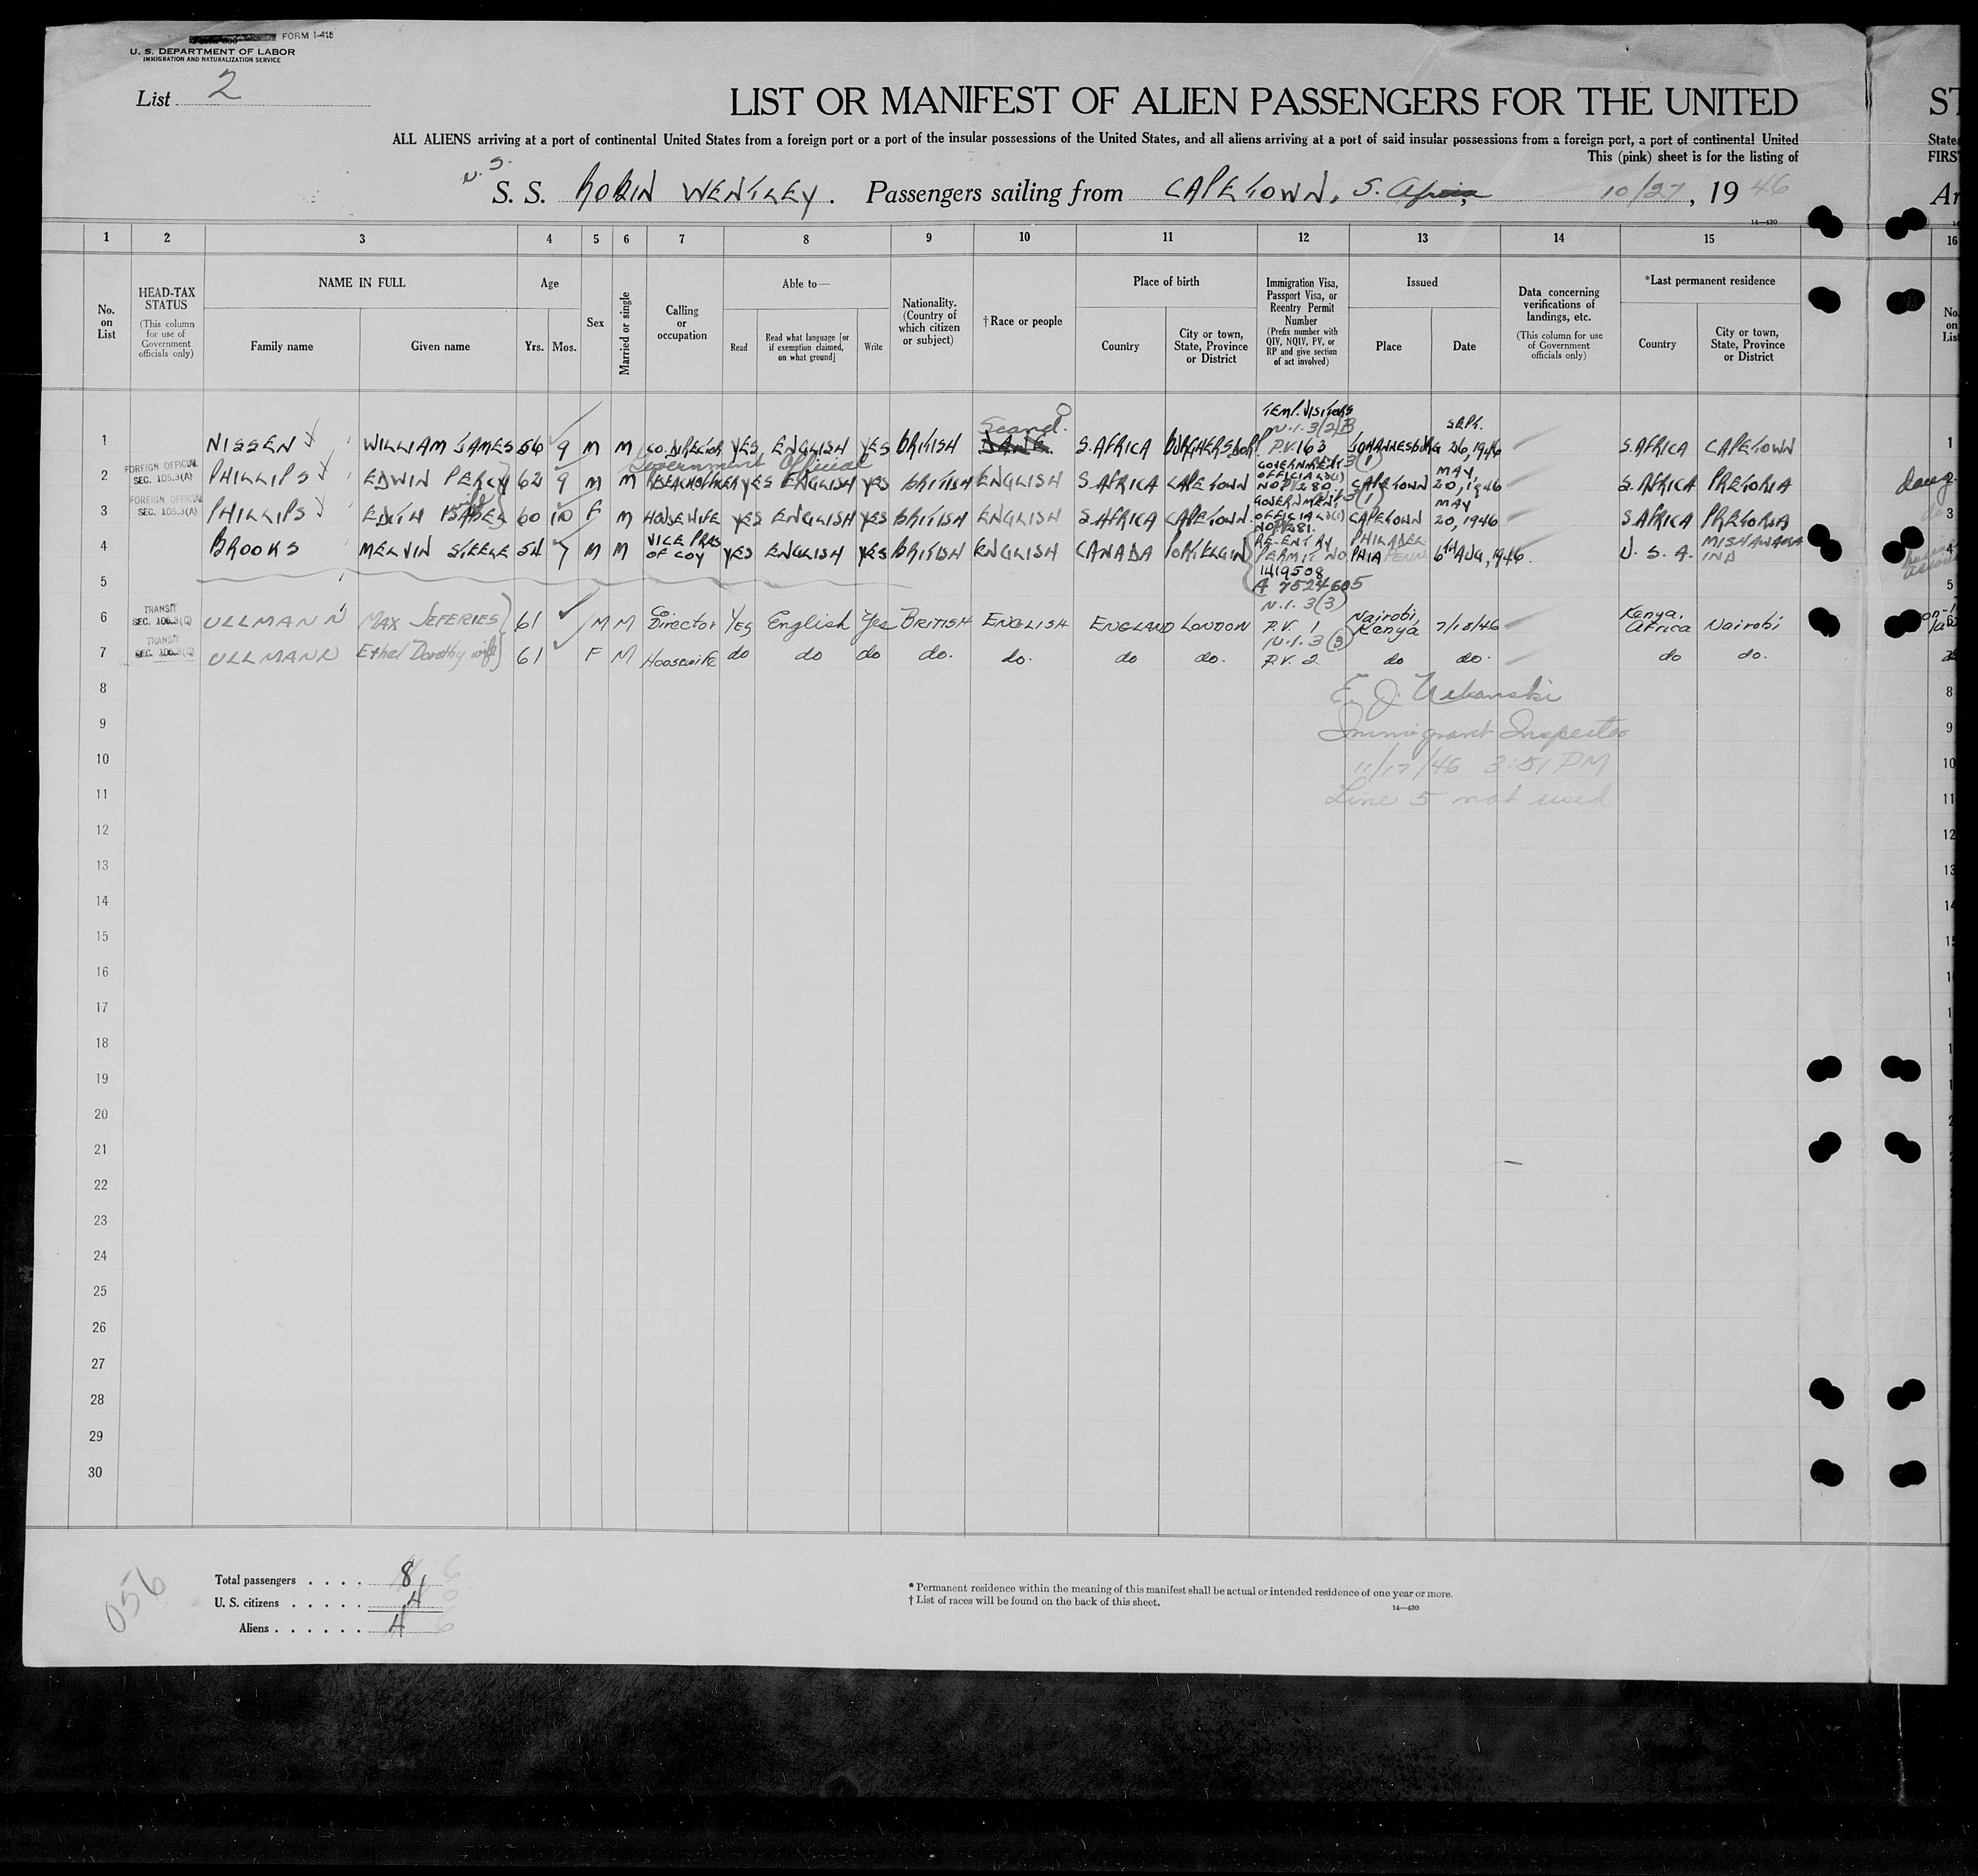 FORM I-415
U. S. DEPARTMENT OF LABOR
IMMIGRATION AND NATURALIZATION SERVICE
List 2
LIST OR MANIFEST OF ALIEN PASSENGERS FOR THE UNITED ST
ALL ALIENS arriving at a port of continental United States from a foreign port or a port of the insular possessions of the United States, and all aliens arriving at a port of said insular possessions from a foreign port, a port of continental United State
This (pink) sheet is for the listing of FIRS
S. S. ROBIN WENTLEY. Passengers sailing from CAPETOWN, S. Africa, 10/27, 19 46 Ar
14—430
1 2 3 4 5 6 7 8 9 10 11 12 13 14 15 16
No. on List
HEAD-TAX STATUS
(This column for use of Government officials only)
NAME IN FULL
Family name Given name
Age
Yrs. Mos.
Sex
Married or single
Calling or occupation
Able to—
Read Read what language [or if exemption claimed, on what ground] Write
Nationality. (Country of which citizen or subject)
†Race or people
Place of birth
Country City or town, State, Province or District
Immigration Visa, Passport Visa, or Reentry Permit Number
(Prefix number with QIV, NQIV, PV, or RP and give section of act involved)
Issued
Place Date
Data concerning verifications of landings, etc.
(This column for use of Government officials only)
*Last permanent residence
Country City or town, State, Province or District
No. on List
TEMP. VISITORS
Scand. N.I. 3(2)B SEPT.
1 NISSEN WILLIAM JAMES 56 9 M M CO DIRECTOR YES ENGLISH YES BRITISH DANE S. AFRICA BURGHERSDORP P.V. 163 JOHANNESBURG 26, 1946 S. AFRICA CAPETOWN 1
Government Official
FOREIGN OFFICIAL SEC. 105.3(A)
2 PHILLIPS EDWIN PERCY 62 9 M M YES ENGLISH YES BRITISH ENGLISH S. AFRICA CAPETOWN GOVERNMENT OFFICIAL 3(1) NO PV 280 CAPETOWN MAY 20, 1946 S. AFRICA PRETORIA 2
FOREIGN OFFICIAL SEC. 105.3(A)
3 PHILLIPS EDITH ISABEL wife 60 10 F M HOUSEWIFE YES ENGLISH YES BRITISH ENGLISH S. AFRICA CAPETOWN GOVERNMENT OFFICIAL 3(1) NO PV 281. CAPETOWN MAY 20, 1946 S. AFRICA PRETORIA 3
4 BROOKS MELVIN STEELE 54 7 M M VICE PRES OF COY YES ENGLISH YES BRITISH ENGLISH CANADA PORT ELGIN RE-ENTRY PERMIT NO 1419508 PHILADELPHIA PENN 6TH AUG, 1946. U. S. A. MISHAWAKA IND 4
5 A 7524605 5
TRANSIT SEC. 105.3(C)
6 ULLMANN MAX JEFERIES 61 M M Co Director Yes English Yes BRITISH ENGLISH ENGLAND LONDON N.I. 3(3) P.V. 1 Nairobi, Kenya 7/18/46 Kenya, Africa Nairobi 6
TRANSIT SEC. 105.3(C)
7 ULLMANN Ethel Dorothy wife 61 F M Housewife do do do do. do. do do. N.I. 3(3) P.V. 2 do do. do do.
8 8
9 9
10 10
11 11
12 12
13 13
14 14
15
16
17
18
19
20
21
22
23
24
25
26
27
28
29
30
Immigrant Inspector
11/17/46 3:51 PM
Line 5 not used
056
Total passengers . . . . 8
U. S. citizens . . . . . 4
Aliens . . . . . . 4
* Permanent residence within the meaning of this manifest shall be actual or intended residence of one year or more.
† List of races will be found on the back of this sheet.
14—430